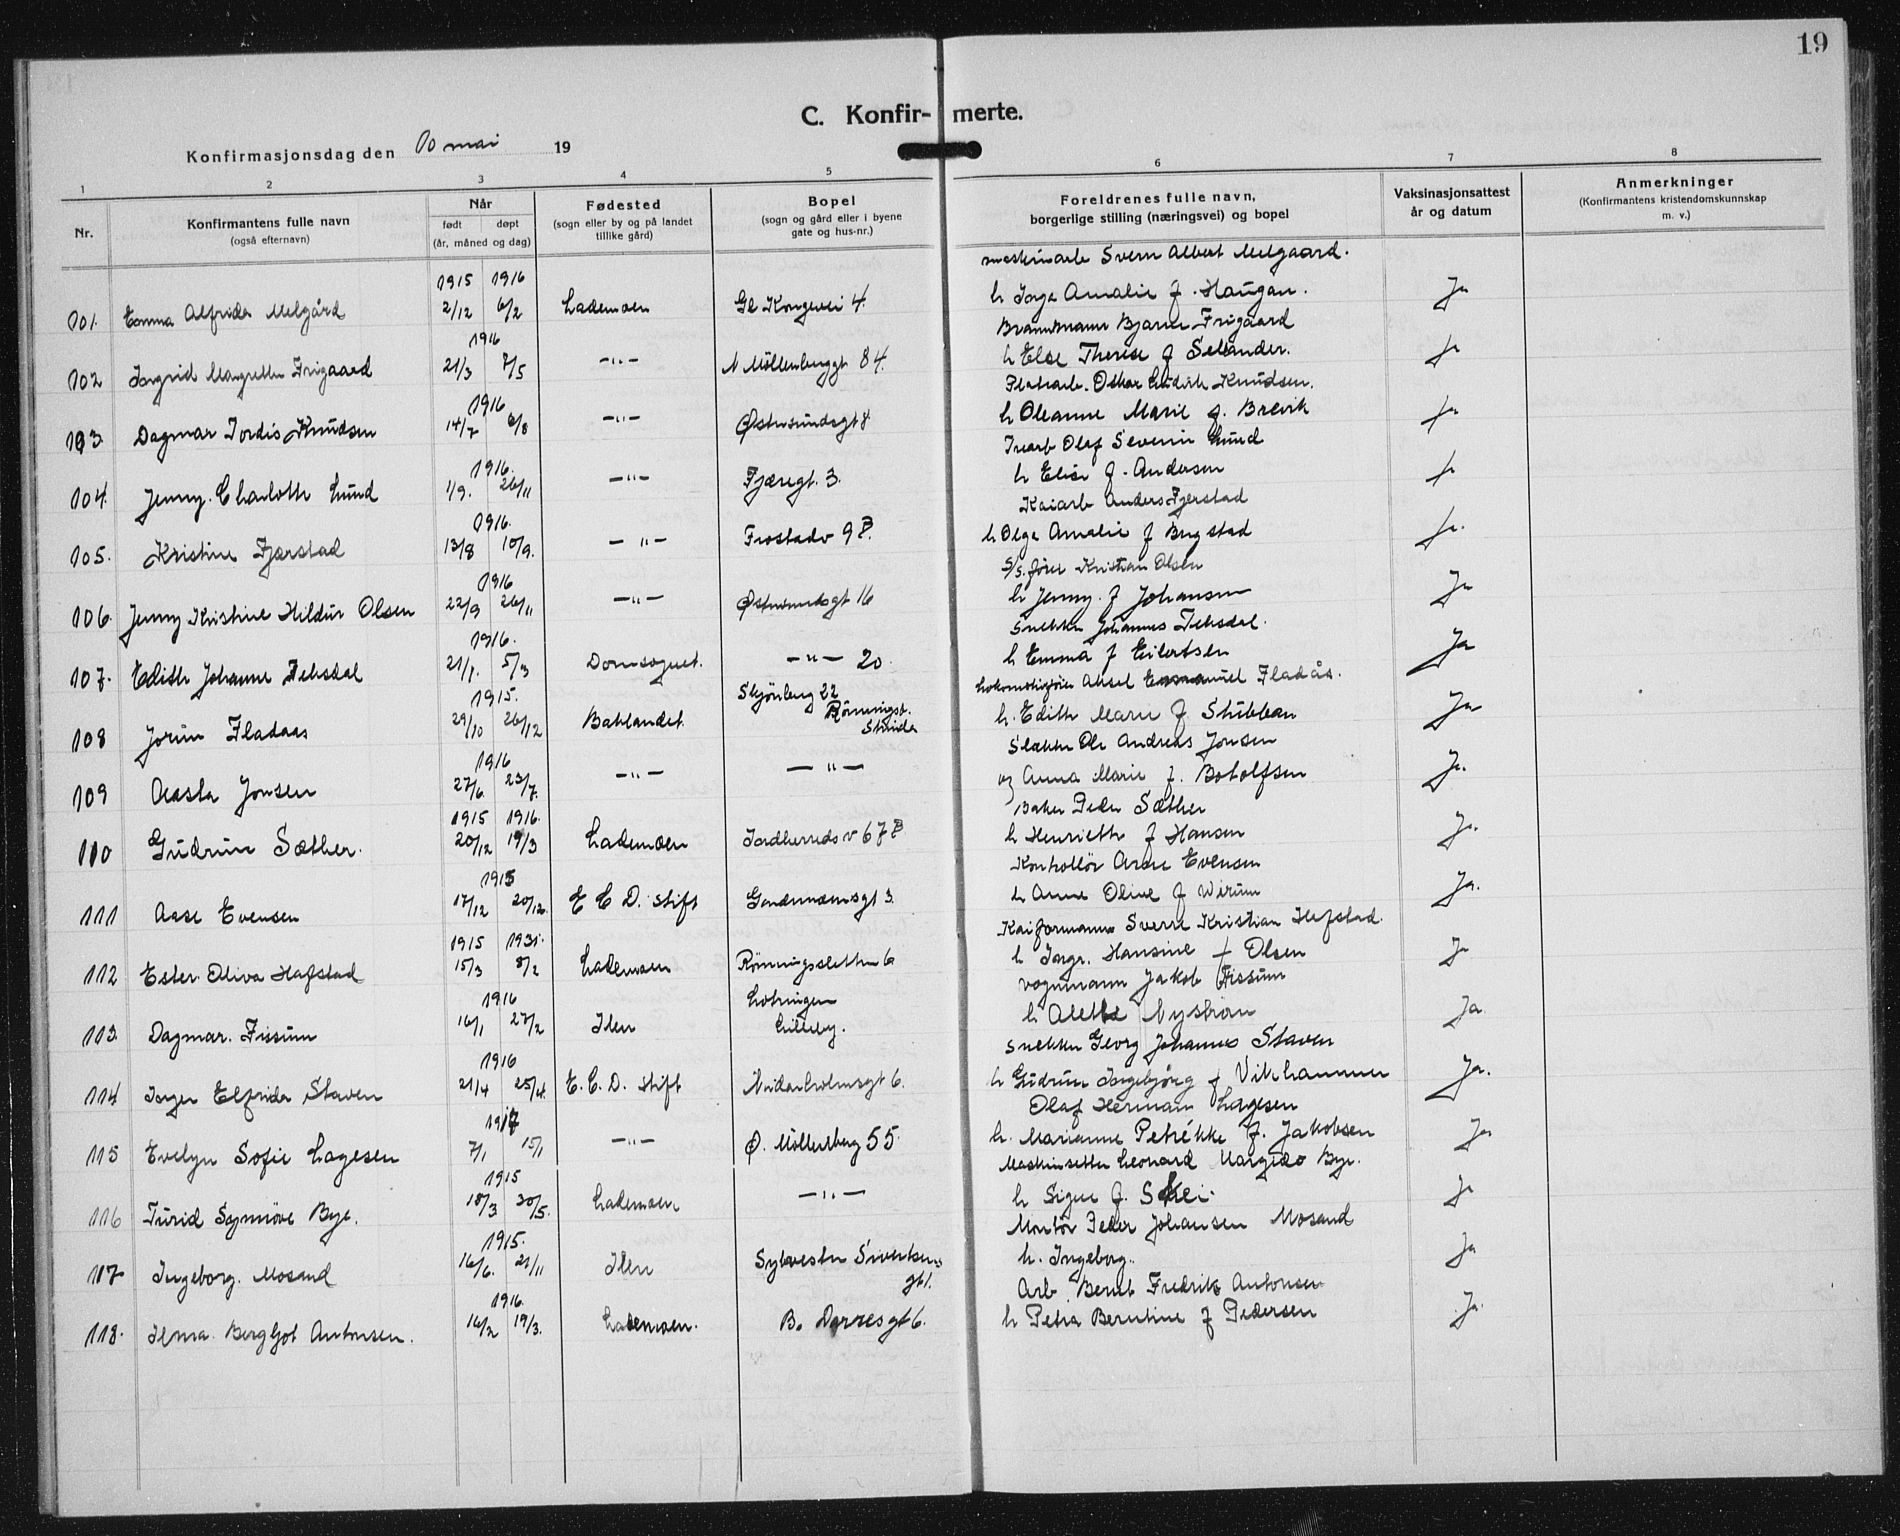 19
C. Konfir- merte.
Konfirmasjonsdag den 10 mai 19
1 2 3 4 5 6 7 8
Nr.
Konfirmantens fulle navn
(også efternavn)
Når
født døpt
(år, måned og dag)
Fødested
(sogn eller by og på landet
tillike gård)
Bopel
(sogn og gård eller i byene
gate og hus-nr.)
Foreldrenes fulle navn,
borgerlige stilling (næringsvei) og bopel
Vaksinasjonsattest
år og datum
Anmerkninger
(Konfirmantens kristendomskunnskap
m. v.)
1915 1916 maskinarb Svern Albert Melgaard.
101. Emma Alfrida Melgård 2/12 6/2 Lademoen Gl Kongevei 4. h Inga Amalie f. Haugan. Ja
1916 Brannmann Bjarne Frigaard
102 Ingrid Margrethe Frigaard 21/3 7/5 —"— N Möllenberggt 84. h Else Therese f Selander. Ja
1916 Platearb. Oskar Ludvik Knudsen.
103 Dagmar Jordis Knudsen 14/7 6/8 —"— Østersundsgt 8 h Oleanne Marie f. Brevik Ja
1916. Olaf Severin Lund
104. Jenny Charlotte Lund 1/9. 26/11 —"— Fjæregt. 3. h Elise f. Andersen Ja
1916. Kaiarb Anders Fjerstad
105. Kristine Fjærstad 13/8 10/9. —"— Frostadv 9B. h Olga Amalie f Brygstad Ja.
1916 S/S. fører Kristian Olsen
106. Jenny Kristine Hildur Olsen 22/9 26/11 —"— Østersundsgt 16 h Jenny. f Johansen Ja
1916. Snekker Johannes Teksdal.
107. Edith Johanne Teksdal 21/1. 5/3 Domsognet. —"— 20. h Emma f Eilertsen Ja
1915. Skjönberg 22 Lokomotivfører Aksel Emanuel Fladås.
108 Jorun Fladaas 29/10 26/12 Baklandet. Rönningsl. Strinda h. Edith Marie f Stubban Ja
1916 Slakter Ole Andreas Jonsen
109 Aasta Jonsen 27/6. 23/7. —"— —"— og Anna Marie f. Botolfsen Ja.
1915 1916. Baker Peder Sæther
110 Gudrun Sæther. 20/12 19/3 Lademoen Jordherreds v 67B h Henriette f Hansen Ja.
1915 Kontrollör Arne Evensen
111 Aase Evensen 17/12 20/12. E C D. stift 3. h Anne Olive f Wirum Ja.
1915 1931. Kaiformann Sverre Kristian Hafstad.
112 Ester Oliva Hafstad 15/3 8/2 Lademoen Rönningsletten 6 h Ingr. Hansine f Olsen Ja
1916 Lotringen vognmann Jakob Fissum
113. Dagmar. Fissum 16/1 27/2 Ilen Lilleby. h Alette Nyström Ja.
1916 Snekker Georg Johannes Staven
114 Inger Elfrida Staven 21/4 25/4. E. C. D. stift Nidarholmsgt 6. h Gudrun Ingebjörg f Vikhammer Ja.
1917 Olaf Herman Lagesen
115 Evelyn Sofie Lagesen 7/1 15/1 —"— Ø. Möllenberg 55. h. Marianne Petrékke f. Jakobsen Ja
1915 Maskinsetter Leonard Margido Bye.
116 Turid Synnöve Bye. 18/3 30/5. Lademoen —"— h Signe f. Skei. Ja
1915. Montör Peder Johansen Mosand
117 Ingeborg. Mosand 16/6. 21/11 Ilen Sylvester Sivertsens gt 1. h. Ingeborg. Ja
1916. Arb. Bernt Fredrik Antonsen
118. Ilma Bergljot Antonsen. 16/2 19/3. Lademoen. B. Dorresgt 6. h Petra Berntine f Pedersen Ja.